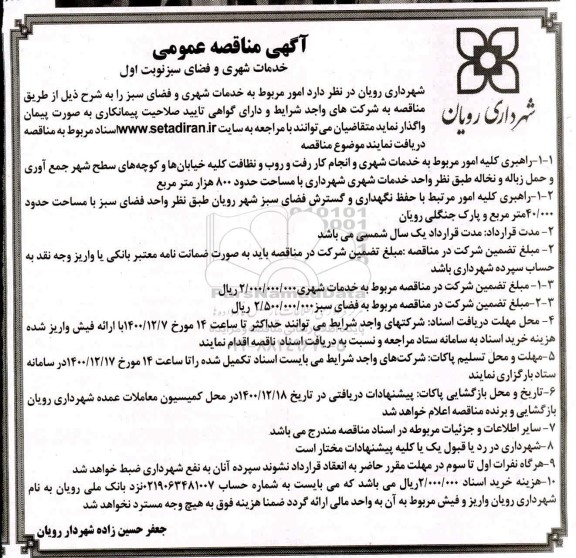 آگهی مناقصه عمومی
خدمات شهری و فضای سبز نوبت اول
شهرداری رویان
شهرداری رویان در نظر دارد امور مربوط به خدمات شهری و فضای سبز را به شرح ذیل از طریق
مناقصه به شرکت های واجد شرایط و دارای گواهی تایید صلاحیت پیمانکاری به صورت پیمان
واگذار نماید متقاضیان می‌توانند با مراجعه به سایت www.setadiran.ir اسناد مربوط به مناقصه
دریافت نمایند موضوع مناقصه
۱-۱-راهبری کلیه امور مربوط به خدمات شهری و انجام کار رفت و روب و نظافت کلیه خیابان‌ها و کوچه‌های سطح شهر جمع آوری
و حمل زباله و نخاله طبق نظر واحد خدمات شهری شهرداری با مساحت حدود ۸۰۰ هزار متر مربع
۱-۲-راهبری کلیه امور مرتبط با حفظ نگهداری و گسترش فضای سبز شهر رویان طبق نظر واحد فضای سبز با مساحت حدود
۴۰/۰۰۰متر مربع و پارک جنگلی رویان
۲- مدت قرارداد: مدت قرارداد یک سال شمسی می باشد
۲- مبلغ تضمین شرکت در مناقصه :مبلغ تضمین شرکت در مناقصه باید به صورت ضمانت نامه معتبر بانکی یا واریز وجه نقد به
حساب سپرده شهرداری باشد
۱-۳- مبلغ تضمین شرکت در مناقصه مربوط به خدمات شهری ۲/۰۰۰/۰۰۰/۰۰۰ ریال
۲-۳- مبلغ تضمین شرکت در مناقصه مربوط به فضای سبز ۲/۵۰۰/۰۰۰/۰۰۰ ریال
۴- محل مهلت دریافت اسناد: شرکتهای واجد شرایط می توانند حداکثر تا ساعت ۱۴ مورخ ۱۴۰۰/۱۲/۷با ارائه فیش واریز شده
هزینه خرید اسناد به سامانه ستاد مراجعه و نسبت به دریافت اسناد ناقصه اقدام نمایند
۵-مهلت و محل تسلیم پاکات: شرکت‌های واجد شرایط می بایست اسناد تکمیل شده راتا ساعت ۱۴ مورخ ۱۴۰۰/۱۲/۱۷در سامانه
ستاد بارگزاری نمایند
۶-تاریخ و محل بازگشایی پاکات: پیشنهادات دریافتی در تاریخ ۱۴۰۰/۱۲/۱۸در محل کمیسیون معاملات عمده شهرداری رویان
بازگشایی و برنده مناقصه اعلام خواهد شد
۷- سایر اطلاعات و جزئیات مربوطه در اسناد مناقصه مندرج می باشد
۸-شهرداری در رد یا قبول یک یا کلیه پیشنهادات مختار است
۹-هرگاه نفرات اول تا سوم در مهلت مقرر حاضر به انعقاد قرارداد نشوند سپرده آنان به نفع شهرداری ضبط خواهد شد
۱۰-هزینه خرید اسناد ۲/۰۰۰/۰۰۰ریال می باشد که می بایست به شماره حساب ۰۲۱۹۰۶۳۴۸۱۰۰۷نزد بانک ملی رویان به نام
شهرداری رویان واریز و فیش مربوط به آن به واحد مالی ارائه گردد ضمنا هزینه فوق به هیچ وجه مسترد نخواهد شد
جعفر حسین زاده شهردار رویان